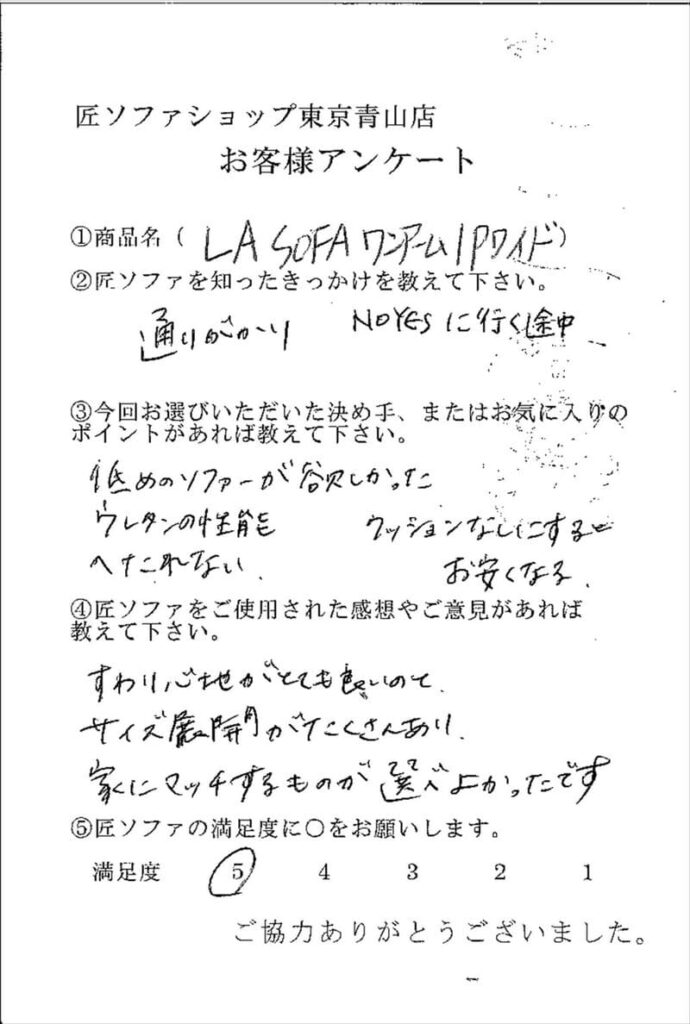 匠ソファショップ東京青山店
お客様アンケート
①商品名( LA SOFA ワンアーム1Pワイド)
②匠ソファを知ったきっかけを教えて下さい。
通りがかり NOYESに行く途中
③今回お選びいただいた決め手、またはお気に入りの
ポイントがあれば教えて下さい。
低めのソファーが欲しかった
ウレタンの性能 クッションなしにすると
へたれない. お安くなる.
④匠ソファをご使用された感想やご意見があれば
教えて下さい。
すわり心地がとても良いのと、
サイズ展開がたくさんあり、
家にマッチするものが選べてよかったです
⑤匠ソファの満足度に〇をお願いします。
満足度 5 4 3 2 1
ご協力ありがとうございました。